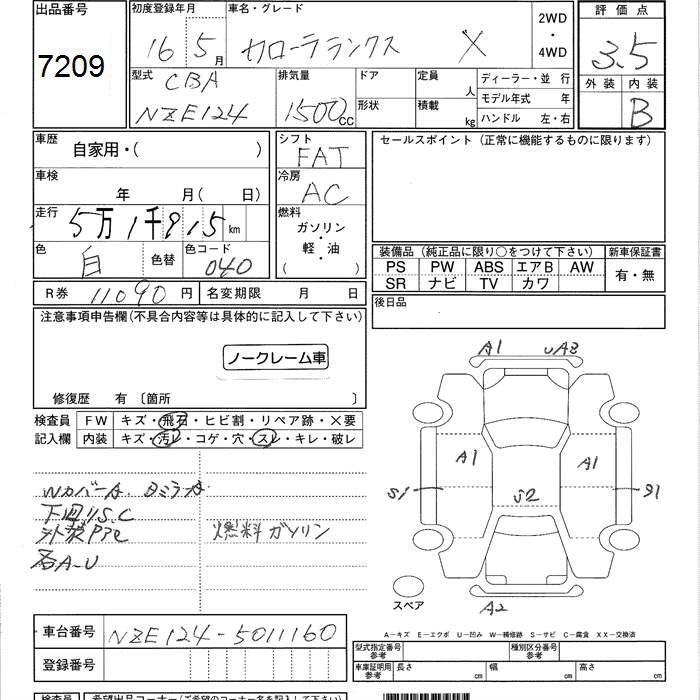 出品番号
7209
初度登録年月
16 5月
車名・グレード
カローラランクス X
2WD
・
4WD
評価点
3.5
外装 内装
B
型式
CBA
NZE124
排気量
1500CC
ドア
形状
定員
人
積載
kg
ディーラー・並行
モデル年式 年
ハンドル 左・右
車歴
自家用・( )
車検
年 月( 日)
走行
5万1千915km
色
白
色替
色コード
040
シフト
FAT
冷房
AC
燃料
ガソリン
・
軽・油
( )
セールスポイント(正常に機能するものに限ります)
装備品(純正品に限り○をつけて下さい)
PS PW ABS エアB AW
SR ナビ TV カワ
新車保証書
有・無
R券 11090円
名変期限 月 日
後日品
注意事項申告欄(不具合内容等は具体的に記入して下さい)
ノークレーム車
修復歴 有〔箇所 〕
検査員
記入欄
FW キズ・飛石・ヒビ割・リペア跡・×要
内装 キズ・汚レ・コゲ・穴・スレ・キレ・破レ
WカバーA. DミラーA
下回りS.C
外装PPE
各A-U
燃料ガソリン
A1 UA3
A1 A1
S1 S2 S1
A2
スペア
A−キズ E−エクボ U−凹み W−補修跡 S−サビ C−腐食 XX−交換済
車台番号
NZE124-5011160
登録番号
型式指定番号
参考
種別区分番号
参考
車庫証明用
参考
長さ cm
幅 cm
高さ cm
検査員
希望出品コーナー(ご希望のコーナー名を記入下さい)